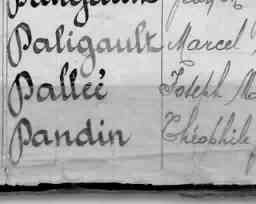 Paligault Marcel
Palleé Joseph
Pandin Théophile